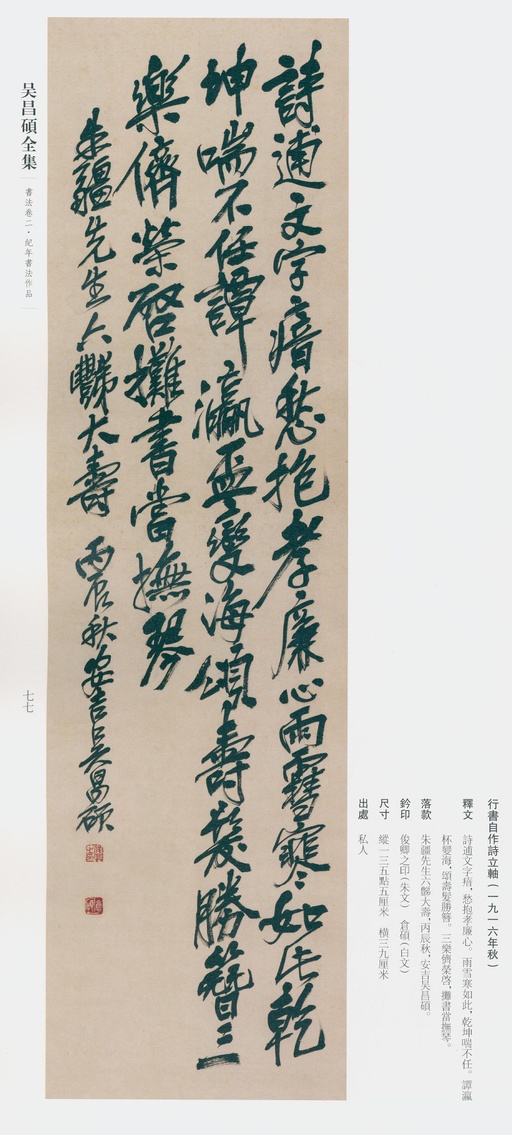 詩逋文字瘖愁抱孝廉心雨雪寒如此乾
坤喘不任譚瀛桮變海頌壽髮勝簪三
樂儕榮啓攤書當撫琴
朱疆先生六豑大壽 丙辰秋安吉吳昌碩
行書自作詩立軸(一九一六年秋)
釋文 詩逋文字瘖,愁抱孝廉心。雨雪寒如此,乾坤喘不任。譚瀛
杯變海,頌壽髮勝簪。三樂儕榮啓,攤書當撫琴。
落款 朱疆先生六豑大壽,丙辰秋,安吉吴昌碩。
鈐印 俊卿之印(朱文) 倉碩(白文)
尺寸 縱一三五點五厘米 橫三九厘米
出處 私人
吴昌碩全集
書法卷二·紀年書法作品
七七